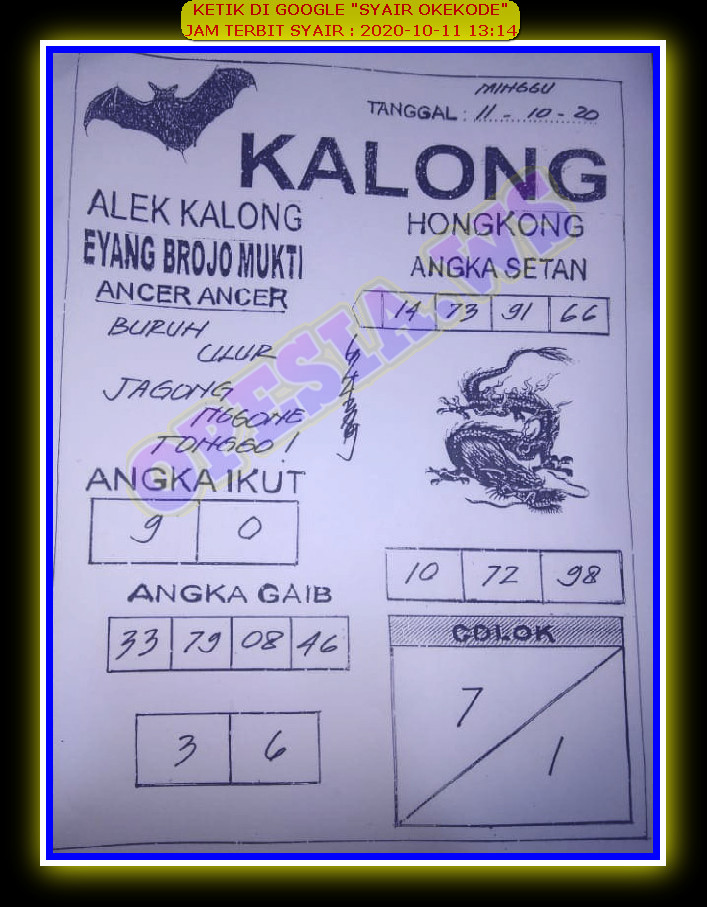 KETIK DI GOOGLE "SYAIR OKEKODE"
JAM TERBIT SYAIR : 2020-10-11 13:14
MINGGU
TANGGAL : 11 - 10 - 20
KALONG
ALEK KALONG
EYANG BROJO MUKTI
ANCER ANCER
HONGKONG
ANGKA SETAN
14 73 91 66
BURUH
ULUR
JAGONG
NGGONE
TONGGO !
OPESIA.WS
ANGKA IKUT
9 0
ANGKA GAIB
33 79 08 46
3 6
10 72 98
COLOK
7
1